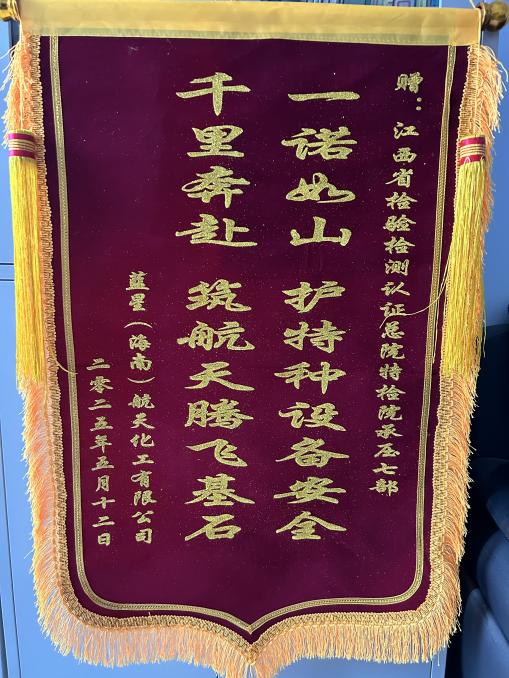 赠：江西省检验检测认证总院特检院承压七部
一诺如山 护特种设备安全
千里奔赴 筑航天腾飞基石
蓝星（海南）航天化工有限公司
二零二五年五月十二日